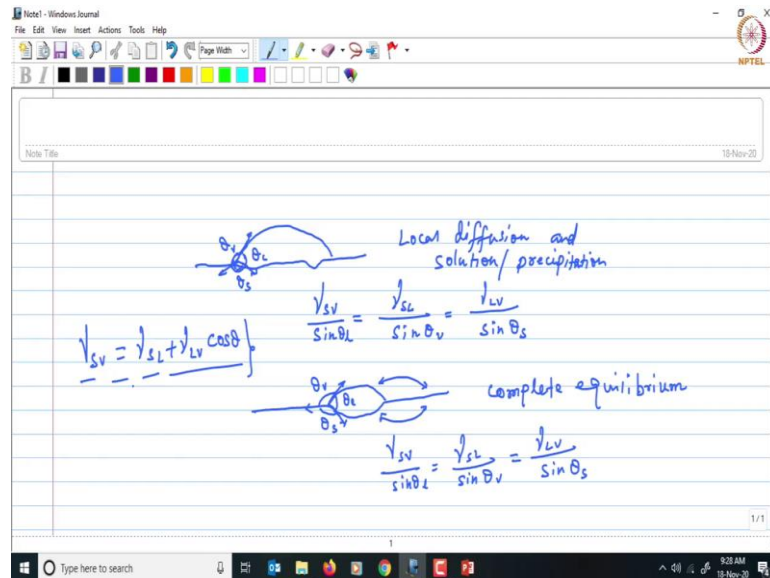 Note1 - Windows Journal
File Edit View Insert Actions Tools Help
Page Width
B I
NPTEL
Note Title
18-Nov-20
θv θL θs
Local diffusion and
solution/precipitation
γSV/sinθl = γSL/sinθv = γLV/sinθs
γSV = γSL + γLV cosθ }
θv θl θs
complete equilibrium
γSV/sinθl = γSL/sinθv = γLV/sinθs
1/1
1
Type here to search
9:28 AM
18-Nov-20